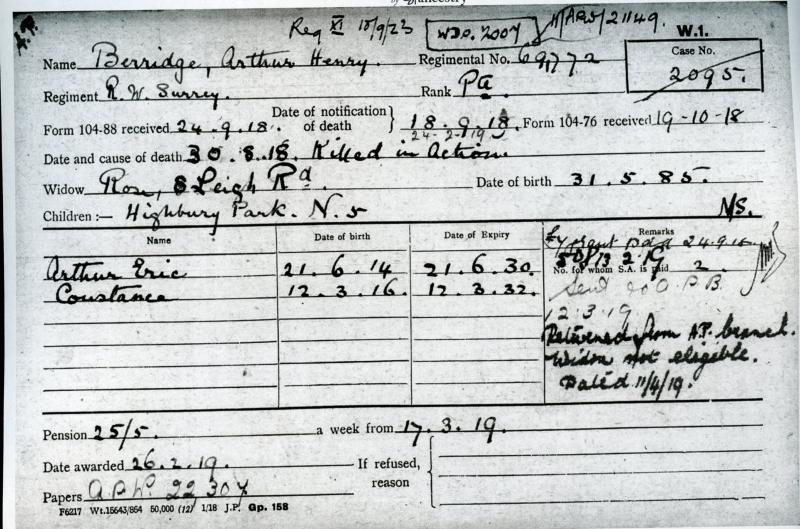 by ancestry
Reg XI 18/9/23
WDO. 2007
MAR5/21149.
W.1.
Name Berridge, Arthur Henry. Regimental No. 69,772
Case No.
2095.
Regiment R. W. Surrey. Rank Pte.
Form 104-88 received 24.9.18. Date of notification of death 18.9.18. Form 104-76 received 19-10-18
24-2-19
Date and cause of death 30.8.18. Killed in Action.
Widow Rose, 8 Leigh Rd. Date of birth 31.5.85.
Children :— Highbury Park. N. 5 N/S.
Name Date of birth Date of Expiry Remarks
grant 24.9.18
Arthur Eric 21.6.14 21.6.30. 2.19
No. for whom S.A. is paid 2.
Constance 12.3.16. 12.3.32. Sent to O.P.B.
12.3.19
Returned from A.P. branch.
Widow not elegible.
Dated 11/4/19.
Pension 25/5. a week from 17.3.19.
Date awarded 26.2.19. If refused,
reason
Papers 22307
F6217 Wt.15643/864 50,000 (12) 1/18 J.P. Gp. 158